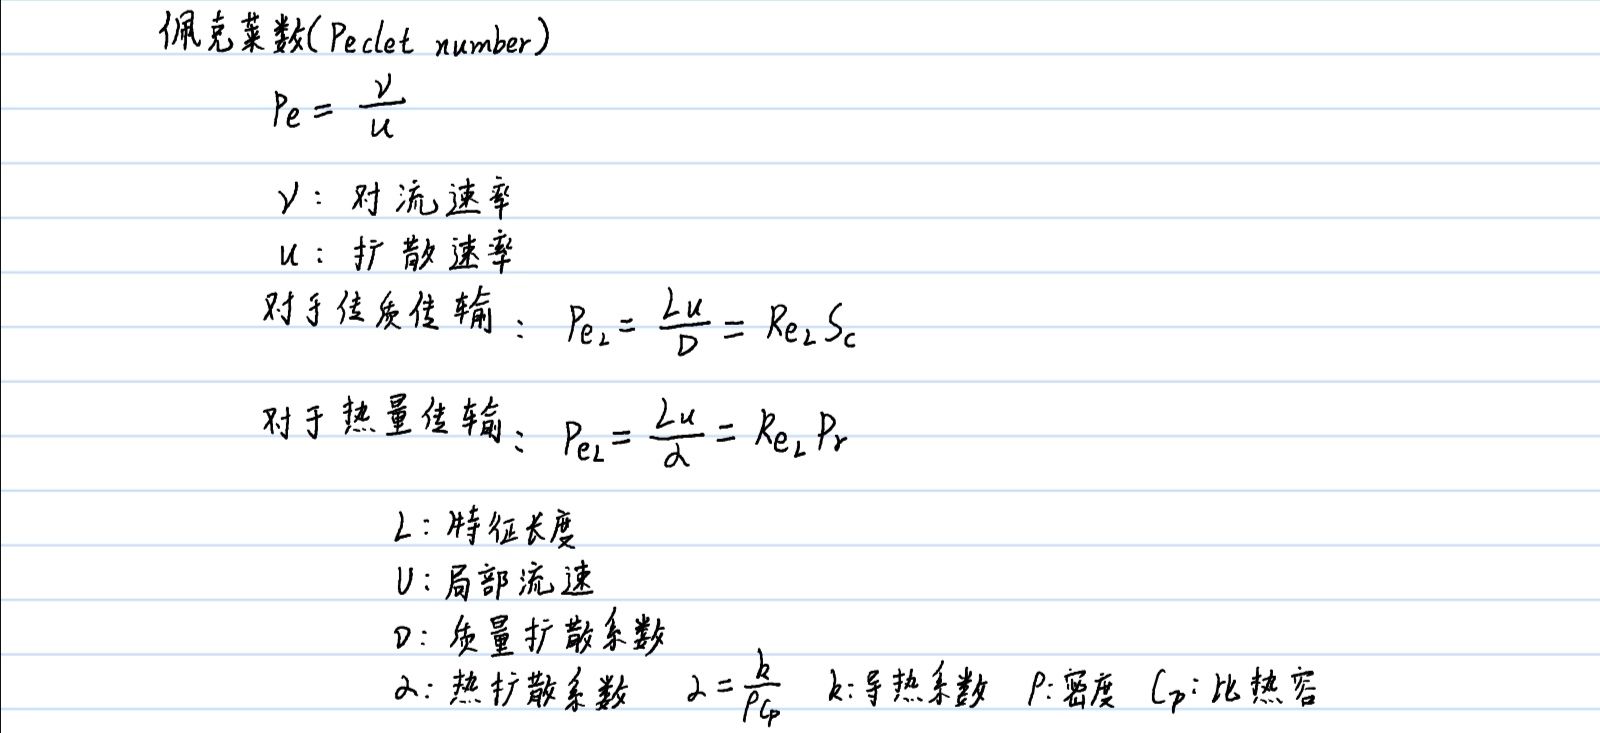 佩克莱数(Peclet number)
Pe = ν/u
ν: 对流速率
u: 扩散速率
对于传质传输: Pe_L = Lu/D = Re_L Sc
对于热量传输: Pe_L = Lu/α = Re_L Pr
L: 特征长度
U: 局部流速
D: 质量扩散系数
α: 热扩散系数 α = k/ρCp k: 导热系数 ρ: 密度 Cp: 比热容